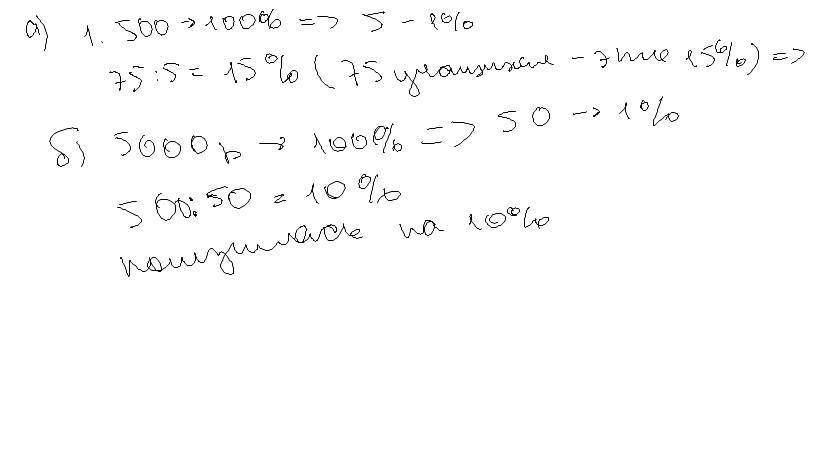 а) 1. 500 → 100% => 5 - 1%
75:5 = 15% (75 учащихся - это 15%) =>
б) 5000р → 100% => 50 → 1%
500:50 = 10%
понизилась на 10%